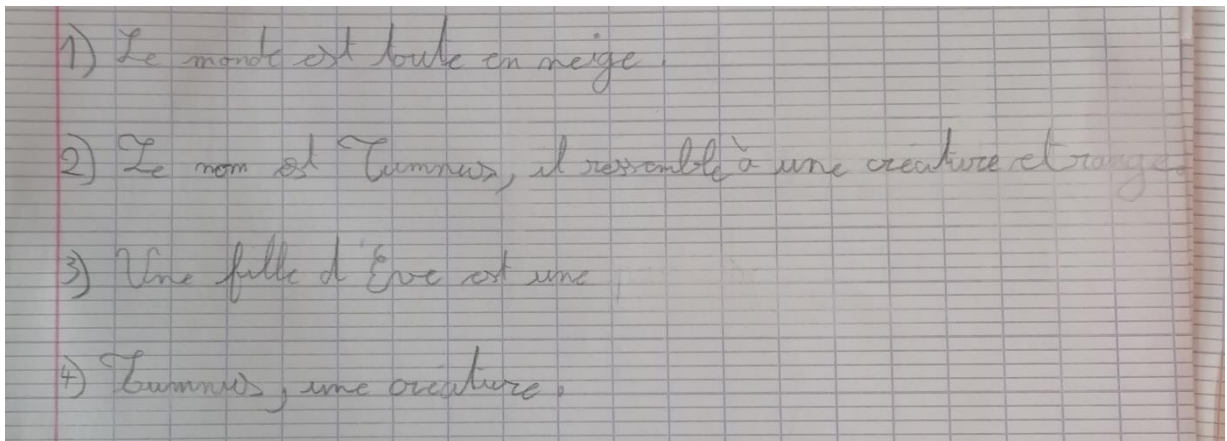 1) Le monde est toute en neige.
2) Le nom est Tumnus, il ressemble à une créature etrange.
3) Une fille d'Eve est une
4) Tumnus, une créature.